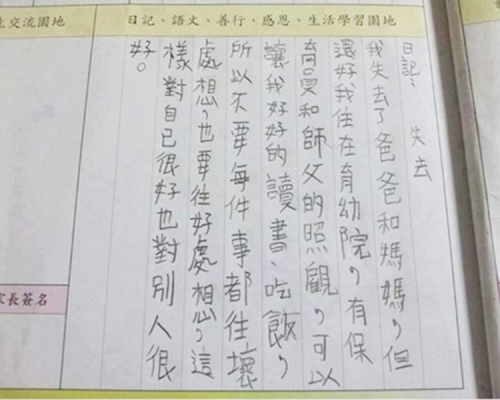 交流園地
日記、語文、善行、感恩、生活學習園地
日記： 失去
我失去了爸爸和媽媽，但
還好我住在育幼院，有保
育員和師父的照觀，可以
讓我好好的讀書、吃飯，
所以不要每件事都往壞
處想，也要往好處想，這
樣對自己很好也對別人很
好。
家長簽名